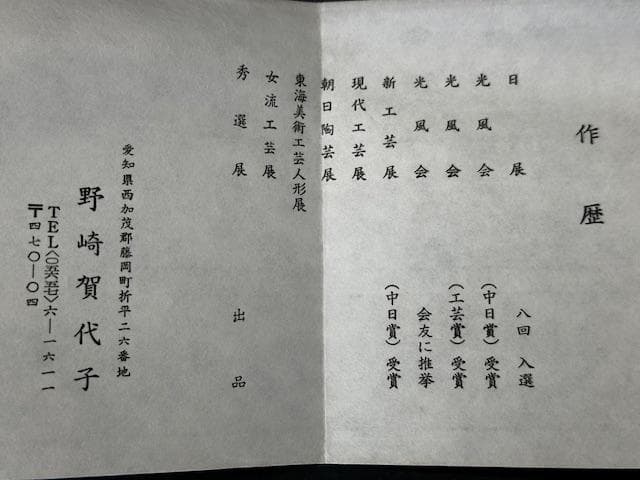 作歴
日展 八回入選
光風会 (中日賞)受賞
光風会 (工芸賞)受賞
光風会 会友に推挙
新工芸展 (中日賞)受賞
現代工芸展
朝日陶芸展
東海美術工芸人形展
女流工芸展
秀選展 出品
愛知県西加茂郡藤岡町折平二六番地
野崎賀代子
TEL〈〇五六五〉六―一六一一
〒四七〇―〇四